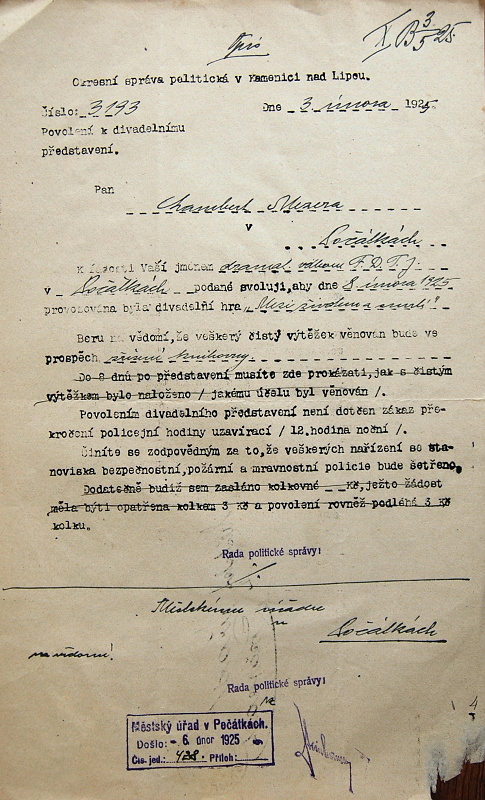 Opis
X B 3/5 25.
Okresní správa politická v Kamenici nad Lipou.
Číslo: 3193 Dne 3. února 1925
Povolení k divadelnímu
představení.
Pan
v
Počátkách
K žádosti Vaší jménem dramat. odboru F.D.T.J.
v Počátkách podané svoluji, aby dne 8. února 1925
provozována byla divadelní hra „Mezi životem a smrtí"
Beru na vědomí, že veškerý čistý výtěžek věnován bude ve
prospěch zřízení knihovny.
Do 8 dnů po představení musíte zde prokázati, jak s čistým
výtěžkem bylo naloženo / jakému účelu byl věnován /.
Povolením divadelního představení není dotčen zákaz pře-
kročení policejní hodiny uzavírací / 12.hodina noční /.
Činíte se zodpovědným za to, že veškerých nařízení se sta-
noviska bezpečnostní, požární a mravnostní policie bude šetřeno.
Dodatečně budiž sem zasláno kolkovné __ Kč, ježto žádost
měla býti opatřena kolkem 3 Kč a povolení rovněž podléhá 3 Kč
kolku.
Rada politické správy:
Městskému úřadu
v
Počátkách
na vědomí!
Rada politické správy:
Městský úřad v Pečátkách.
Došlo: - 6. únor 1925
Čís. jed.: 428 Příloh: